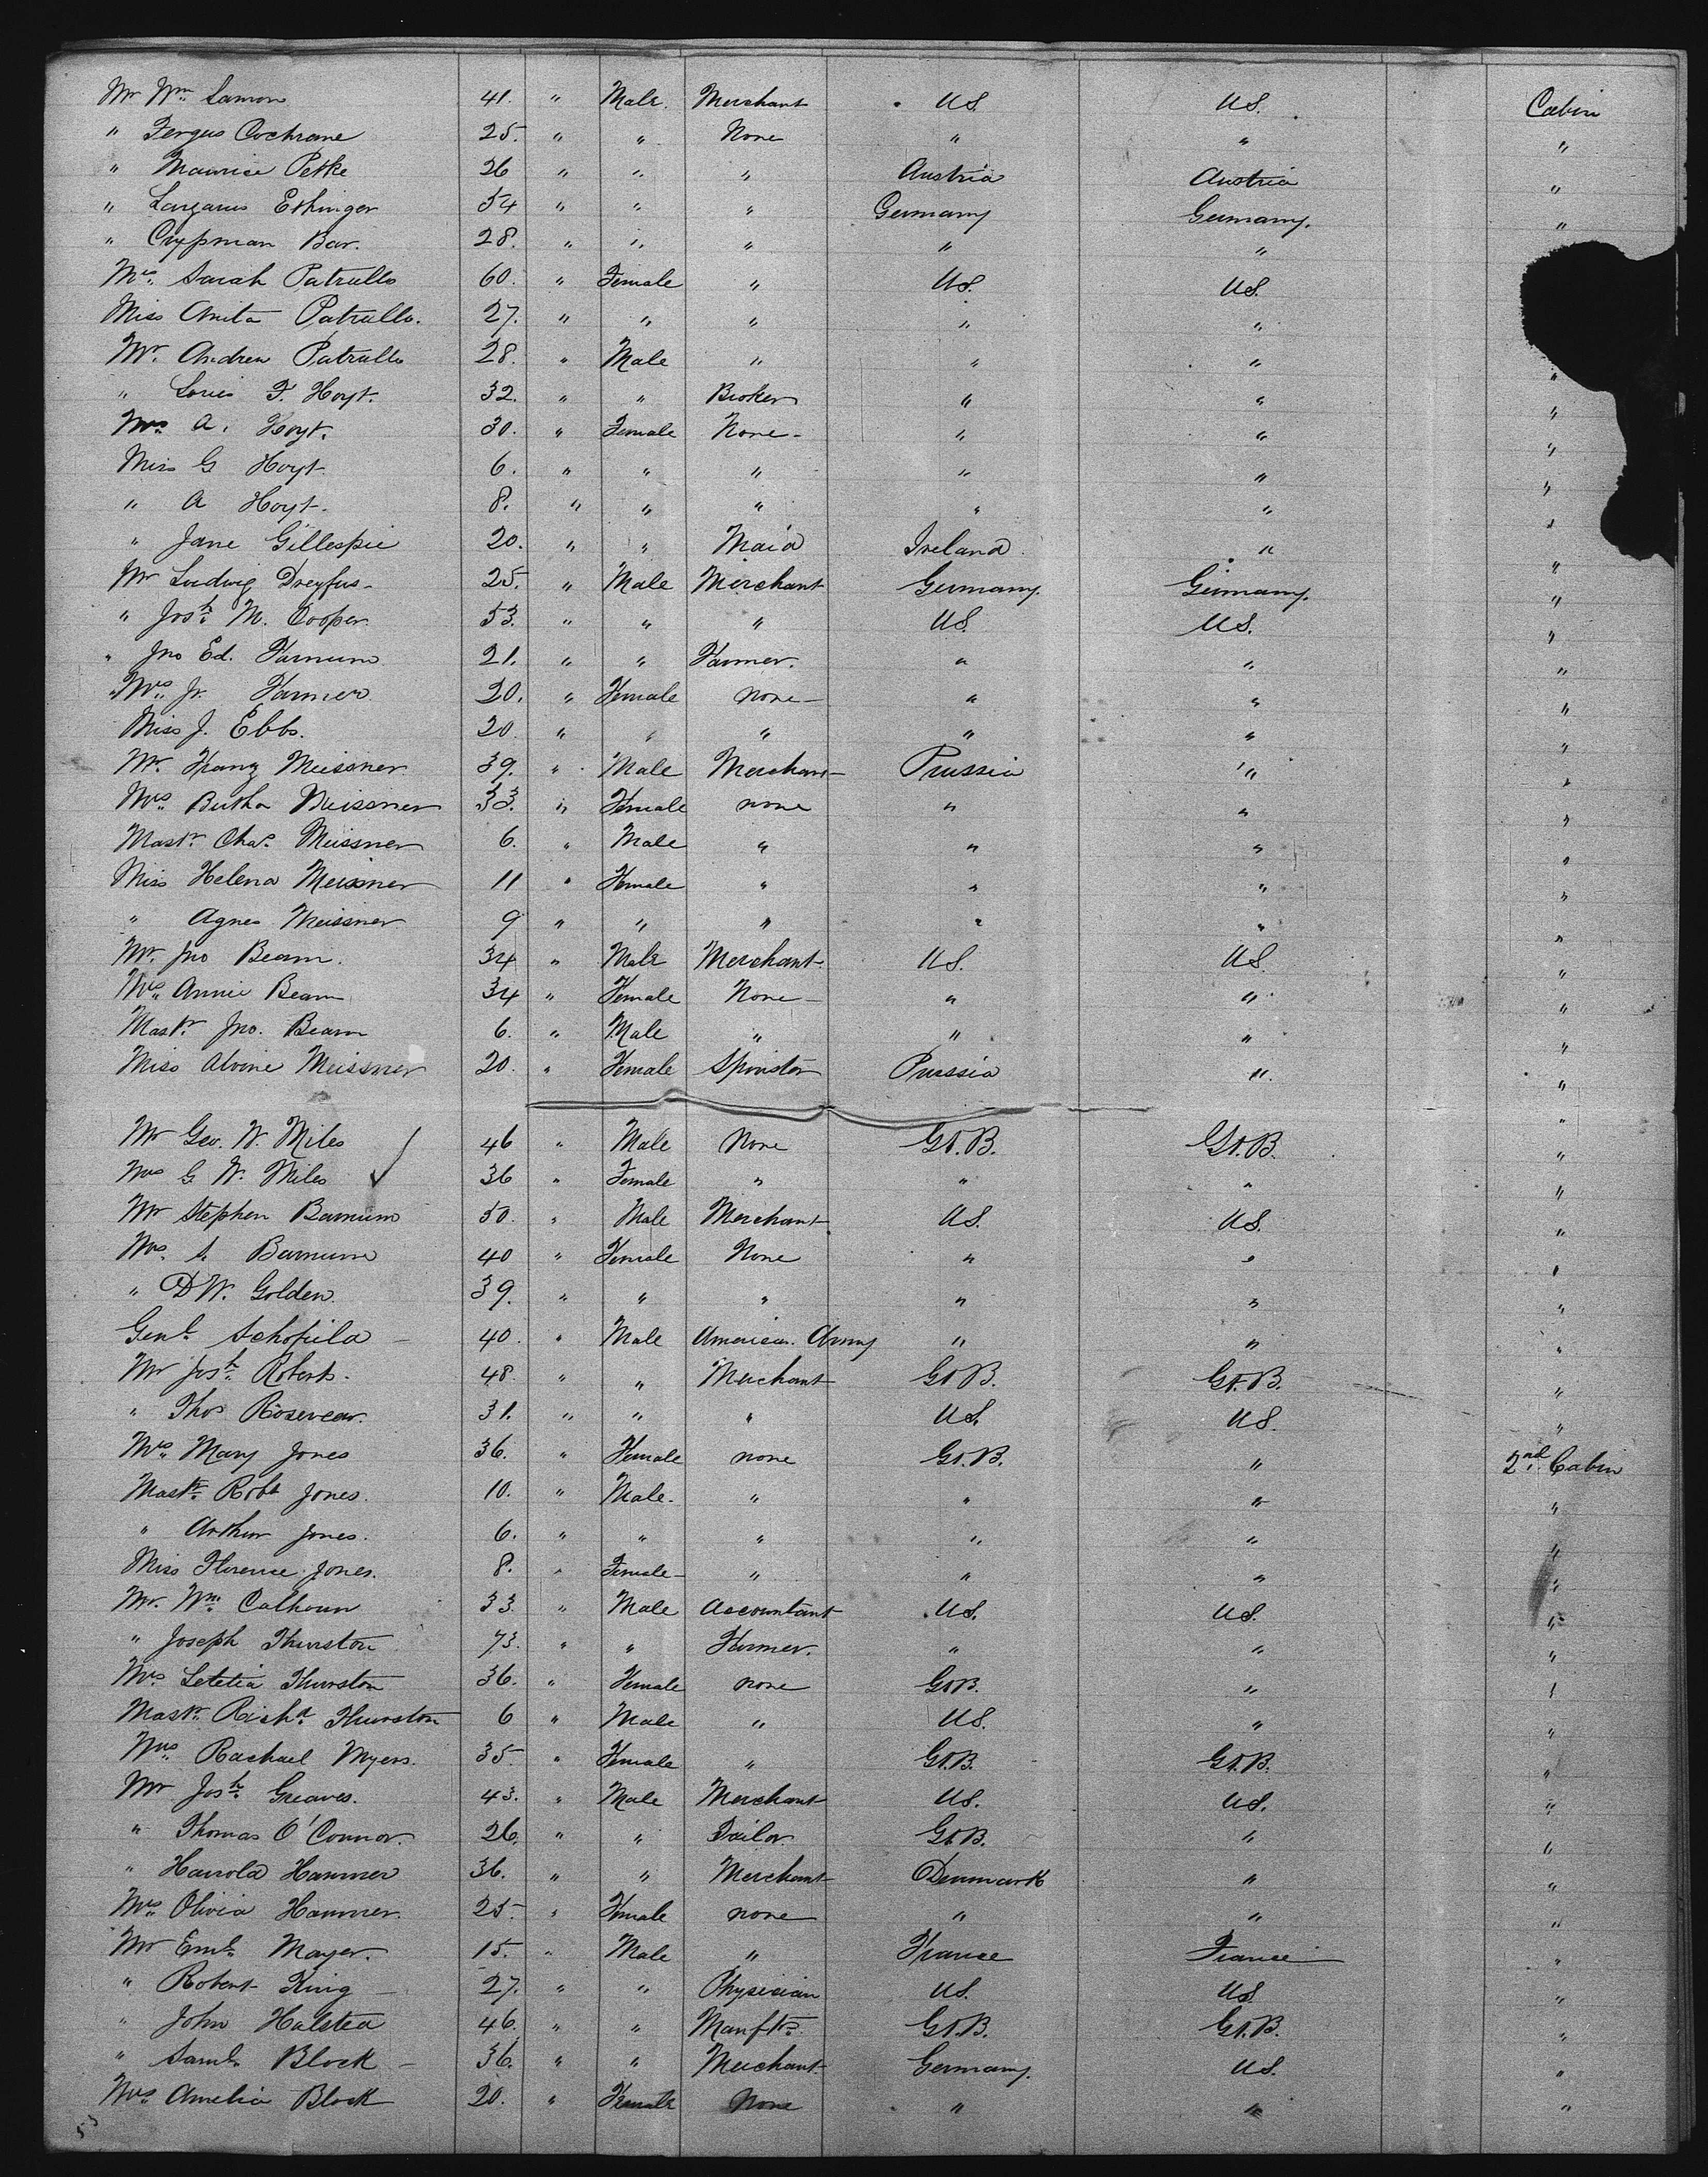 Mr Wm Lamon 41. " Male. Merchant U.S. U.S. Cabin
" Fergus Cochrane 25. " " None " " "
" Maurice Petke 26 " " " Austria Austria "
" Lazarus Ethinger 54 " " " Germany Germany. "
" Bar. 28. " " " " "
Mrs. Sarah Patrullo 60. " Female " U.S. U.S.
Miss Anita Patrullo. 27. " " " " "
Mr. Andrew Patrullo 28. " Male " " " "
" Louis F. Hoyt. 32. " " Broker " " "
Mrs. A. Hoyt. 30. " Female None - " " "
Miss G Hoyt 6. " " " " " "
" A Hoyt. 8. " " " " " "
" Jane Gillespie 20. " " Maid Ireland " "
Mr Ludwig Dreyfus 25. " Male Merchant Germany. Germany. "
" Josh. M. Cooper. 53. " " " U.S. U.S. "
" Jno Ed. Farnum 21. " " Farmer. " " "
" Mrs. Jr. Farmer 20. " Female none - " " "
Miss J. Ebbs. 20. " " " " " "
Mr. Franz Meissner 39. " Male Merchant Prussia " "
Mrs. Bertha Meissner 33. " Female none " " "
Mastr. Chas. Meissner 6. " Male " " " "
Miss Helena Meissner 11 " Female " " " "
" Agnes Meissner 9 " " " " " "
Mr. Jno Beam. 34 " Male Merchant U.S. U.S. "
Mrs. Annie Beam 34 " Female None - " " "
Mastr. Jno. Beam 6. " Male " " " "
Miss Alvine Meissner 20. " Female Spinster Prussia " "
Mr Geo. W. Miles 46 " Male None Gt.B. Gt.B. "
Mrs G. W. Miles 36 " Female " " " "
Mr Stephen Barnum 50. " Male Merchant U.S. U.S. "
Mrs. S. Barnum 40 " Female None " " "
" D W. Golden. 39. " " " " " "
Genl. Schofield - 40. " Male American Army " " "
Mr Josh. Roberts. 48. " " Merchant Gt B. Gt.B. "
" Thos Rosevear. 31. " " " U.S. U.S. "
Mrs. Mary Jones 36. " Female none Gt.B. " 2nd. Cabin
Mastr. Robt Jones. 10. " Male. " " " "
" Arthur Jones. 6. " " " " " "
Miss Florence Jones. 8. " Female - " " " "
Mr. Wm. Calhoun 33. " Male Accountant U.S. U.S. "
" Joseph Thurston 73. " " Farmer. " " "
Mrs. Letetia Thurston 36. " Female none Gt B. " "
Mastr. Richd. Thurston 6 " Male " U.S. " "
Mrs. Rachael Myers. 35. " Female " Gt.B. Gt.B. "
Mr Josh. Greaves. 43. " Male Merchant U.S. U.S. "
" Thomas O'Connor. 26. " " Tailor Gt.B. " "
" Harrold Hammer 36. " " Merchant Denmark " "
Mrs. Olivia Hammer. 25. " Female none " " "
Mr Eml. Mayer. 15. " Male " France France "
" Robert King - 27. " " Physician U.S. U.S. "
" John Halsted 46. " " Manftr. Gt.B. Gt.B. "
" Saml. Block - 36. " " Merchant. Germany. U.S. "
Mrs. Amelia Block 20. " Female None " " "
53